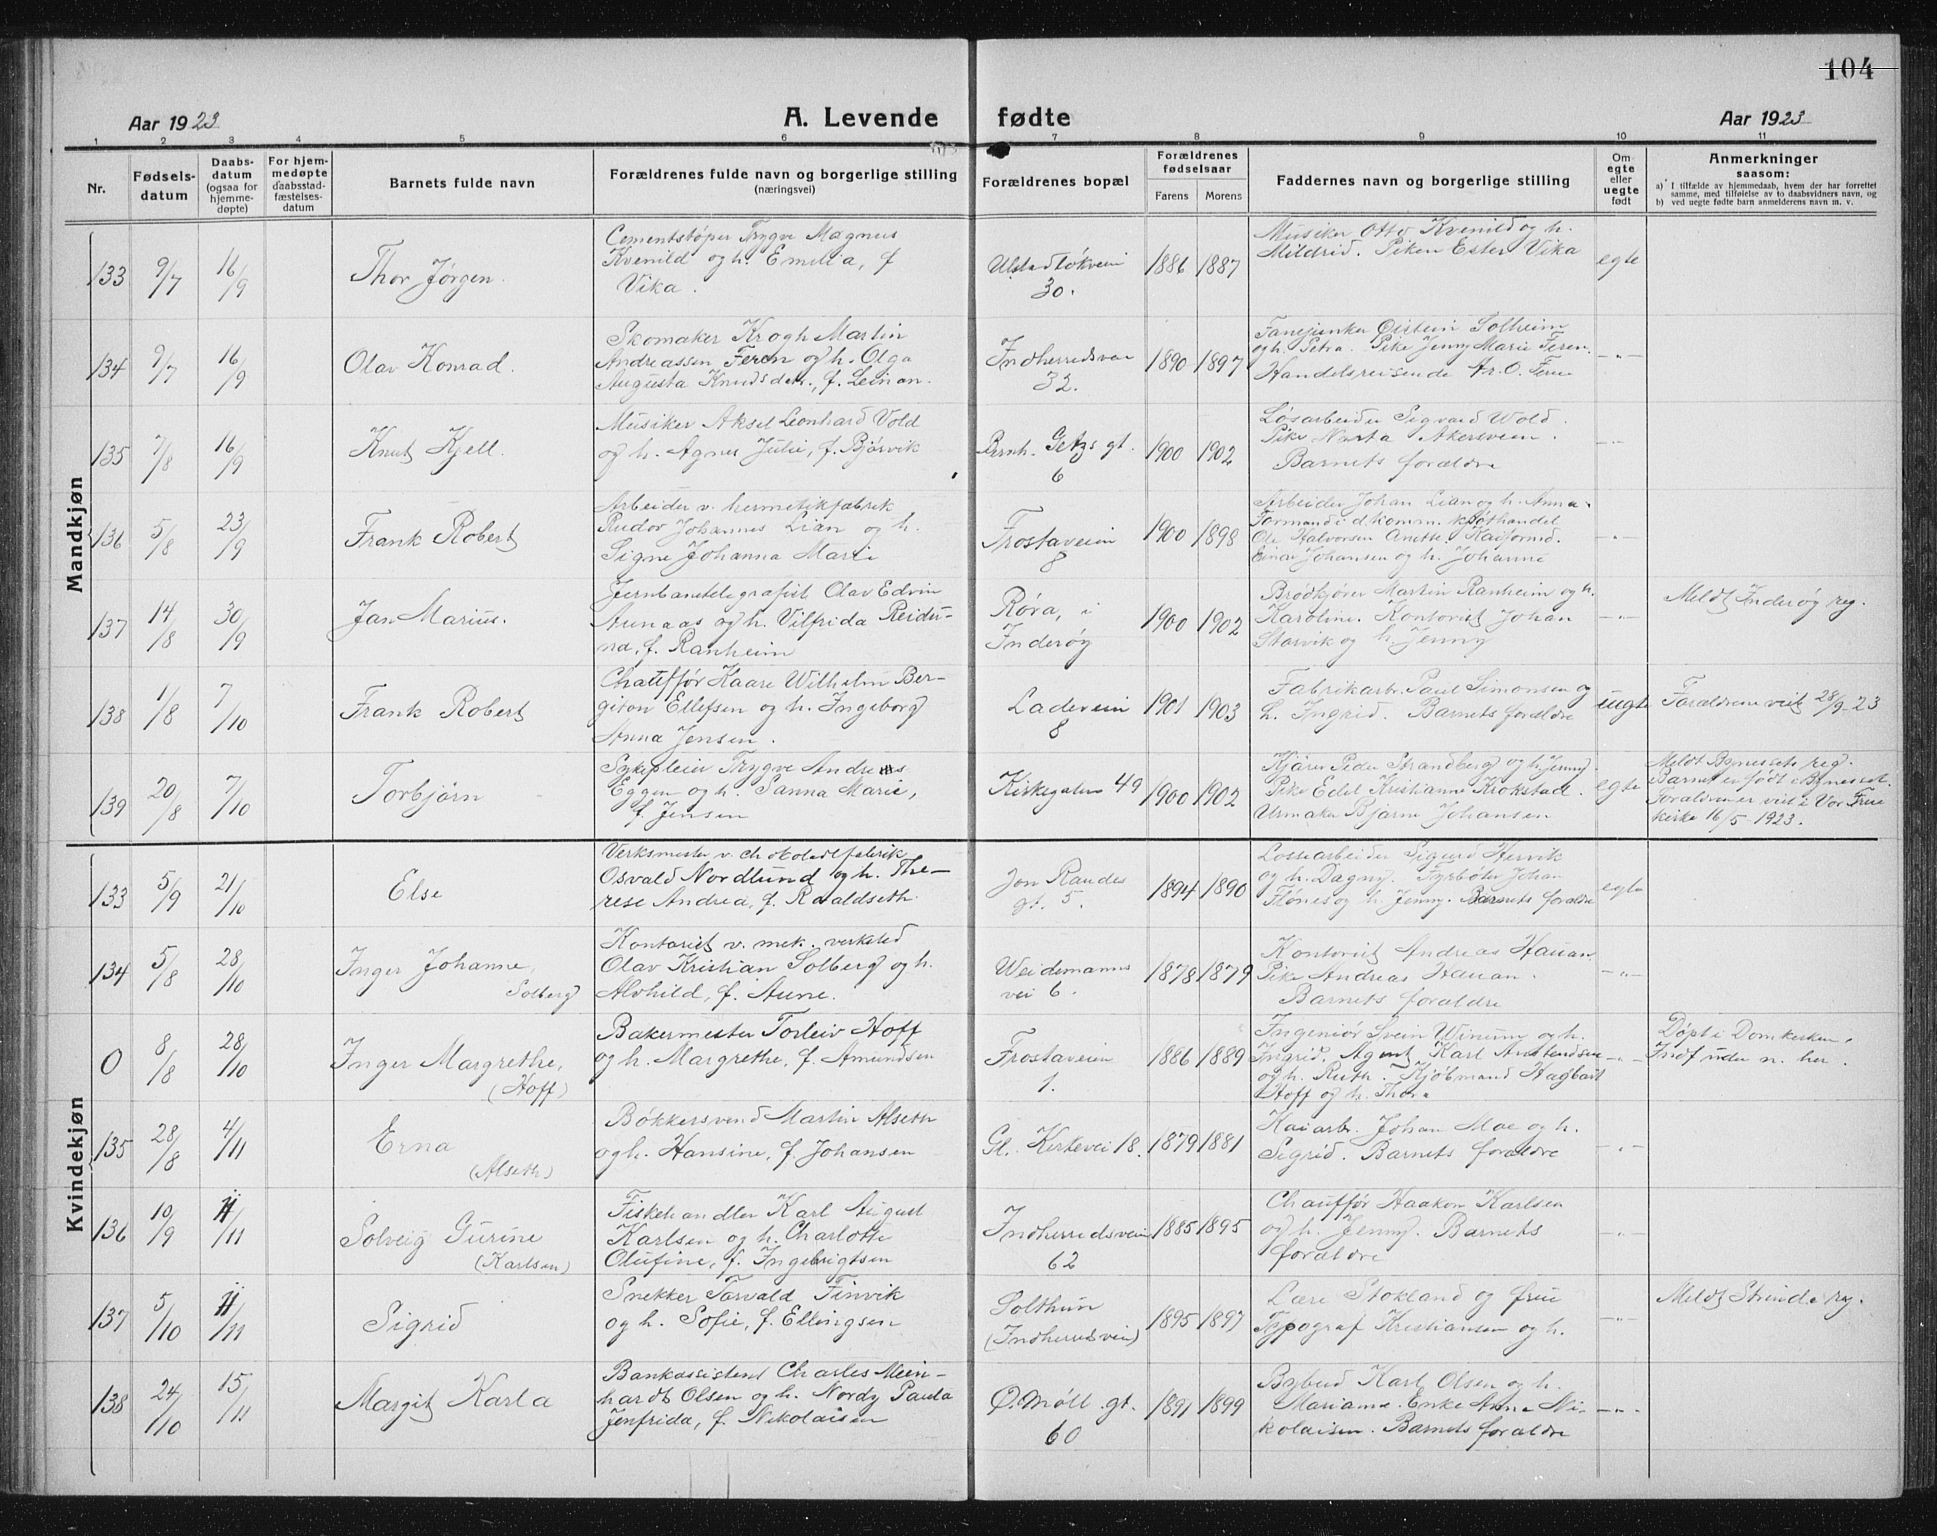 104
Aar 1923
A. Levende fødte
Aar 1923
1 2 3 4 5 6 7 8 9 10 11
Nr.
Fødsels-
datum
Daabs-
datum
(ogsaa for
hjemme-
døpte)
For hjem-
medøpte
daabsstad-
fæstelses-
datum
Barnets fulde navn
Forældrenes fulde navn og borgerlige stilling
(næringsvei)
Forældrenes bopæl
Forældrenes
fødselsaar
Farens Morens
Faddernes navn og borgerlige stilling
Om
egte
eller
uegte
født
Anmerkninger
saasom:
a) I tilfælde av hjemmedaab, hvem der har forrettet
samme, med tilføielse av to daabsvidners navn, og
b) ved uegte fødte barn anmelderens navn m. v.
Mandkjøn
133 9/7 16/9 Thor Jørgen.
Cementstøper Trygve Magnus
Kvenild og h. Emelia, f
Vika.
30.
1886 1887
Musiker Otto Kvenild og h.
Mildrid. Piken Ester Vika
egte
134 9/7 16/9 Olav Konrad.
Skomaker Krogh Martin
Andreassen Feren og h. Olga
Augusta Knudsdtr., f. Leinan.
Indherredsvei
32.
1890 1897
Fanejunker Øistein Solheim
og h. Petra. Pike Jenny Marie Feren.
Handelsreisende Ar. O. Feren
-"-
135 7/8 16/9 Knut Kjell.
Musiker Aksel Leonhard Vold
og h. Agnes Julie, f. Bjørvik
Bernh. Getzs gt.
6
1900 1902
Løsarbeider Sigvard Wold.
Pike Marta Akersveen.
Barnets forældre
-"-
136 5/8 23/9 Frank Robert
Arbeider v. hermetikfabrik
Peder Johannes Lian og h.
Signe Johanna Marti
Frostaveien
8
1900 1898
Arbeider Johan Lian og h. Anna.
Formand i d komm. kjøthandel
Ole Halvorsen Anette. Kaiformd.
Einar Johansen og h. Johanne
-"-
137 14/8 30/9 Jan Marius.
Jernbanetelegrafist Olav Edvin
Aunaas og h. Vilfrida Reidu-
na, f. Ranheim
Røra, i
Inderøy
1900 1902
Brødkjører Martin Ranheim og h.
Karoline. Kontorist Johan
Størvik og h. Jenny
-"-
Meldt Inderøy reg.
138 1/8 7/10 Frank Robert
Chauffør Kaare Wilhelm Ber-
giton Ellefsen og h. Ingeborg
Anna Jensen.
Ladeveien
8
1901 1903
Fabrikarb. Paul Simonsen og
h. Ingrid. Barnets forældre
uegte
Forældrene viet 28/9 23
139 20/8 7/10 Torbjørn
Sykepleier Trygve Andreas
Eggen og h. Sanna Marie,
f. Jensen
Kirkegaten 49
1900 1902
Kjører Peder Strandberg og h. Jenny.
Pike Edel Kristianne Krokstad.
Urmaker Bjarne Johansen
egte
Meldt Bynessets reg.
Barnet er født i Bynesset.
Forældrene er viet i Vor Frue
kirke 16/5 1923.
Kvindekjøn
133 5/9 21/10 Else
Verksmester v. chokoladefabrik
Osvald Nordlund og h. The-
rese Andrea, f. Roaldseth.
Jon Raudes
gt. 5.
1894 1890
Lossearbeider Sigurd Hervik
og h. Dagny. Fyrbøter Johan
Flønes og h. Jenny. Barnets forældre
egte
134 5/8 28/10 Inger Johanne,
Solberg
Kontorist v. mek. verksted
Olav Kristian Solberg og h.
Alvhild, f. Aune.
Weidemanns
vei 6.
1878 1879
Kontorist Andreas Hauan
Pike Andreas Hauan.
Barnets forældre
-"-
0 8/8 28/10 Inger Margrethe,
(Hoff)
Bakermester Torleiv Hoff
og h. Margrethe, f. Amundsen
Frostaveien
1.
1886 1889
Ingeniør Svein Winum og h.
Ingrid. Agent Karl Amundsen
og h. Ruth. Kjøbmand Hagbart
Hoff og h. Thora
-"-
Døpt i Domkirken.
Indf. uten n. her.
135 28/8 4/11 Erna
(Alseth)
Bøkkersvend Martin Alseth
og h. Hansine, f. Johansen
Gl. Kirkevei 18.
1879 1881
Kaiarb. Johan Moe og h.
Sigrid. Barnets forældre
-"-
136 10/9 11/11 Solveig Gurine
(Karlsen)
Fiskehandler Karl August
Karlsen og h. Charlotte
Olufine, f. Ingebrigtsen
Indherredsveien
62
1885 1895
Chauffør Haakon Karlsen
og h. Jenny. Barnets
forældre
-"-
137 5/10 11/11 Sigrid
Snekker Torvald Finvik
og h. Sofie, f. Ellingsen
Solthun
(Indherredsveien)
1895 1897
Lære Stokland og frue
Typograf Kristiansen og h.
-"-
Meldt Strinda reg.
138 24/10 15/11 Margit Karla
Bankassistent Charles Mein-
hardt Olsen og h. Nordy Paula
Jenfrida, f. Nikolaisen
Ø. Møll. gt.
60
1891 1899
Bybud Karl Olsen og h.
Marianne. Enke Anna Ni-
kolaisen. Barnets forældre
-"-